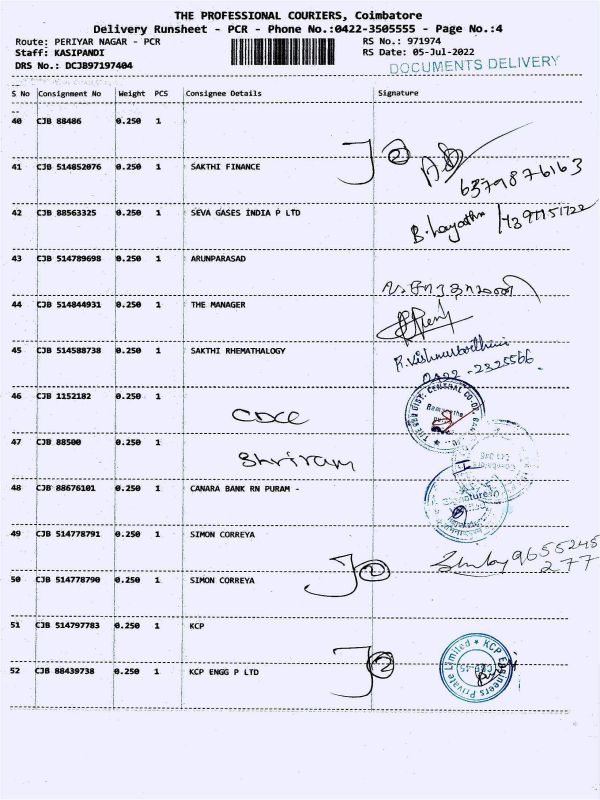 THE PROFESSIONAL COURIERS, Coimbatore
Delivery Runsheet - PCR - Phone No.:0422-3505555 - Page No.:4
Route: PERIYAR NAGAR - PCR RS No.: 971974
Staff: KASIPANDI RS Date: 05-Jul-2022
DRS No.: DCJB97197404 DOCUMENTS DELIVERY
S No Consignment No Weight PCS Consignee Details Signature
40 CJB 88486 0.250 1
2
41 CJB 514852076 0.250 1 SAKTHI FINANCE 6379876163
42 CJB 88563325 0.250 1 SEVA GASES INDIA P LTD
43 CJB 514789698 0.250 1 ARUNPARASAD
44 CJB 514844931 0.250 1 THE MANAGER
45 CJB 514588738 0.250 1 SAKTHI RHEMATHALOGY
0422 - 2325566
46 CJB 1152182 0.250 1
CDCC
47 CJB 88500 0.250 1
Shriram
48 CJB 88676101 0.250 1 CANARA BANK RN PURAM -
49 CJB 514778791 0.250 1 SIMON CORREYA
9655245
277
50 CJB 514778790 0.250 1 SIMON CORREYA
2
51 CJB 514797783 0.250 1 KCP
2
52 CJB 88439738 0.250 1 KCP ENGG P LTD
KCP Engineers Private Limited